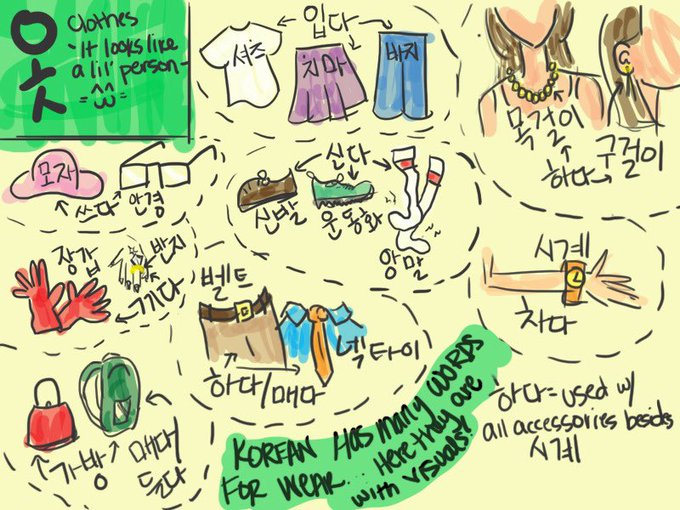 옷
clothes
- It looks like
a lil' person -
입다
셔츠
치마
바지
목걸이
구걸이
하다
모자
쓰다
안경
신다
신발
운동화
양말
장갑
반지
끼다
벨트
넥타이
하다/매다
시계
차다
가방
매다
들다
KOREAN HAS MANY WORDS
FOR WEAR... Here they are
with visuals!
하다 = used w/
all accessories besides
시계